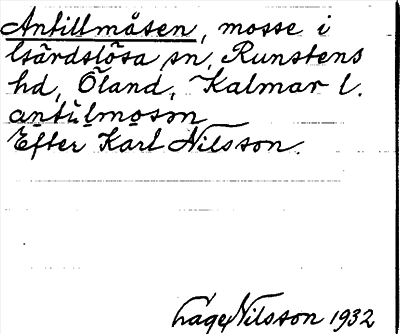 Antillmåsen, mosse i
Gärdslösa sn, Runstens
hd, Öland, Kalmar l.
antulmosɘn
Efter Karl Nilsson.
Lage Nilsson 1932